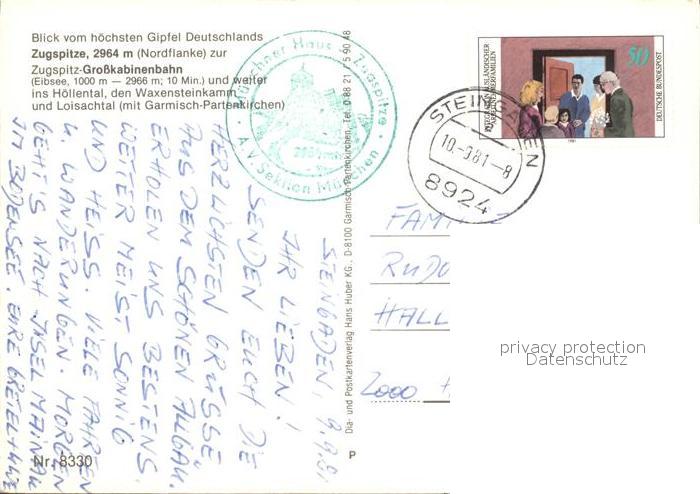 Blick vom höchsten Gipfel Deutschlands
Zugspitze, 2964 m (Nordflanke) zur
Zugspitz-Großkabinenbahn
(Eibsee, 1000 m — 2966 m; 10 Min.) und weiter
ins Höllental, den Waxensteinkamm
und Loisachtal (mit Garmisch-Partenkirchen)
Münchner Haus Zugspitze
A.V. Sektion München
STEINGADEN, 9.9.81
IHR LIEBEN!
SENDEN EUCH DIE
HERZLICHSTEN GRÜSSE
AUS DEM SCHÖNEN ALLGÄU.
ERHOLEN UNS BESTENS.
WETTER MEIST SONNIG
UND HEISS. VIELE FAHRTEN
U. WANDERUNGEN. MORGEN
GEHT'S NACH INSEL MAINAU
IM BODENSEE. EURE
Nr. 8330
Dia- und Postkartenverlag Hans Huber KG., D-8100 Garmisch-Partenkirchen, Tel. 0 88 21 / 5 90 48
P
50
DEUTSCHE BUNDESPOST
1981
STEINGADEN
10.-9.81.-8
8924
FAM
RUDO
HALL
2000
privacy protection
Datenschutz